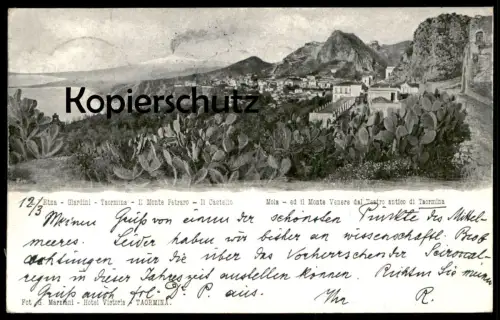 Kopierschutz
Etna - Giardini - Taormina - Il Monte Petraro - Il Castello Mola - ed il Monte Venere dal Teatro antico di Taormina
12/3
Meinen Gruß von einem der schönsten Punkte des Mittel-
meeres. Leider haben wir bisher an wissenschaftl. Beob
achtungen nur die über das Vorherrschen der Sciroccal-
regen in dieser Jahreszeit anstellen können. Richten Sie meinen
Gruß auch Frl. D. P. aus. Ihr R.
Fot. G. Marziani - Hotel Victoria - TAORMINA.